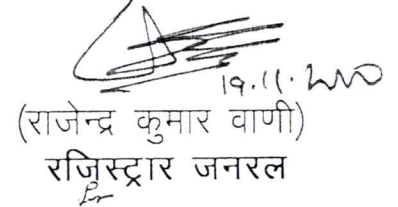 19.11.2020
(राजेन्द्र कुमार वाणी)
रजिस्ट्रार जनरल